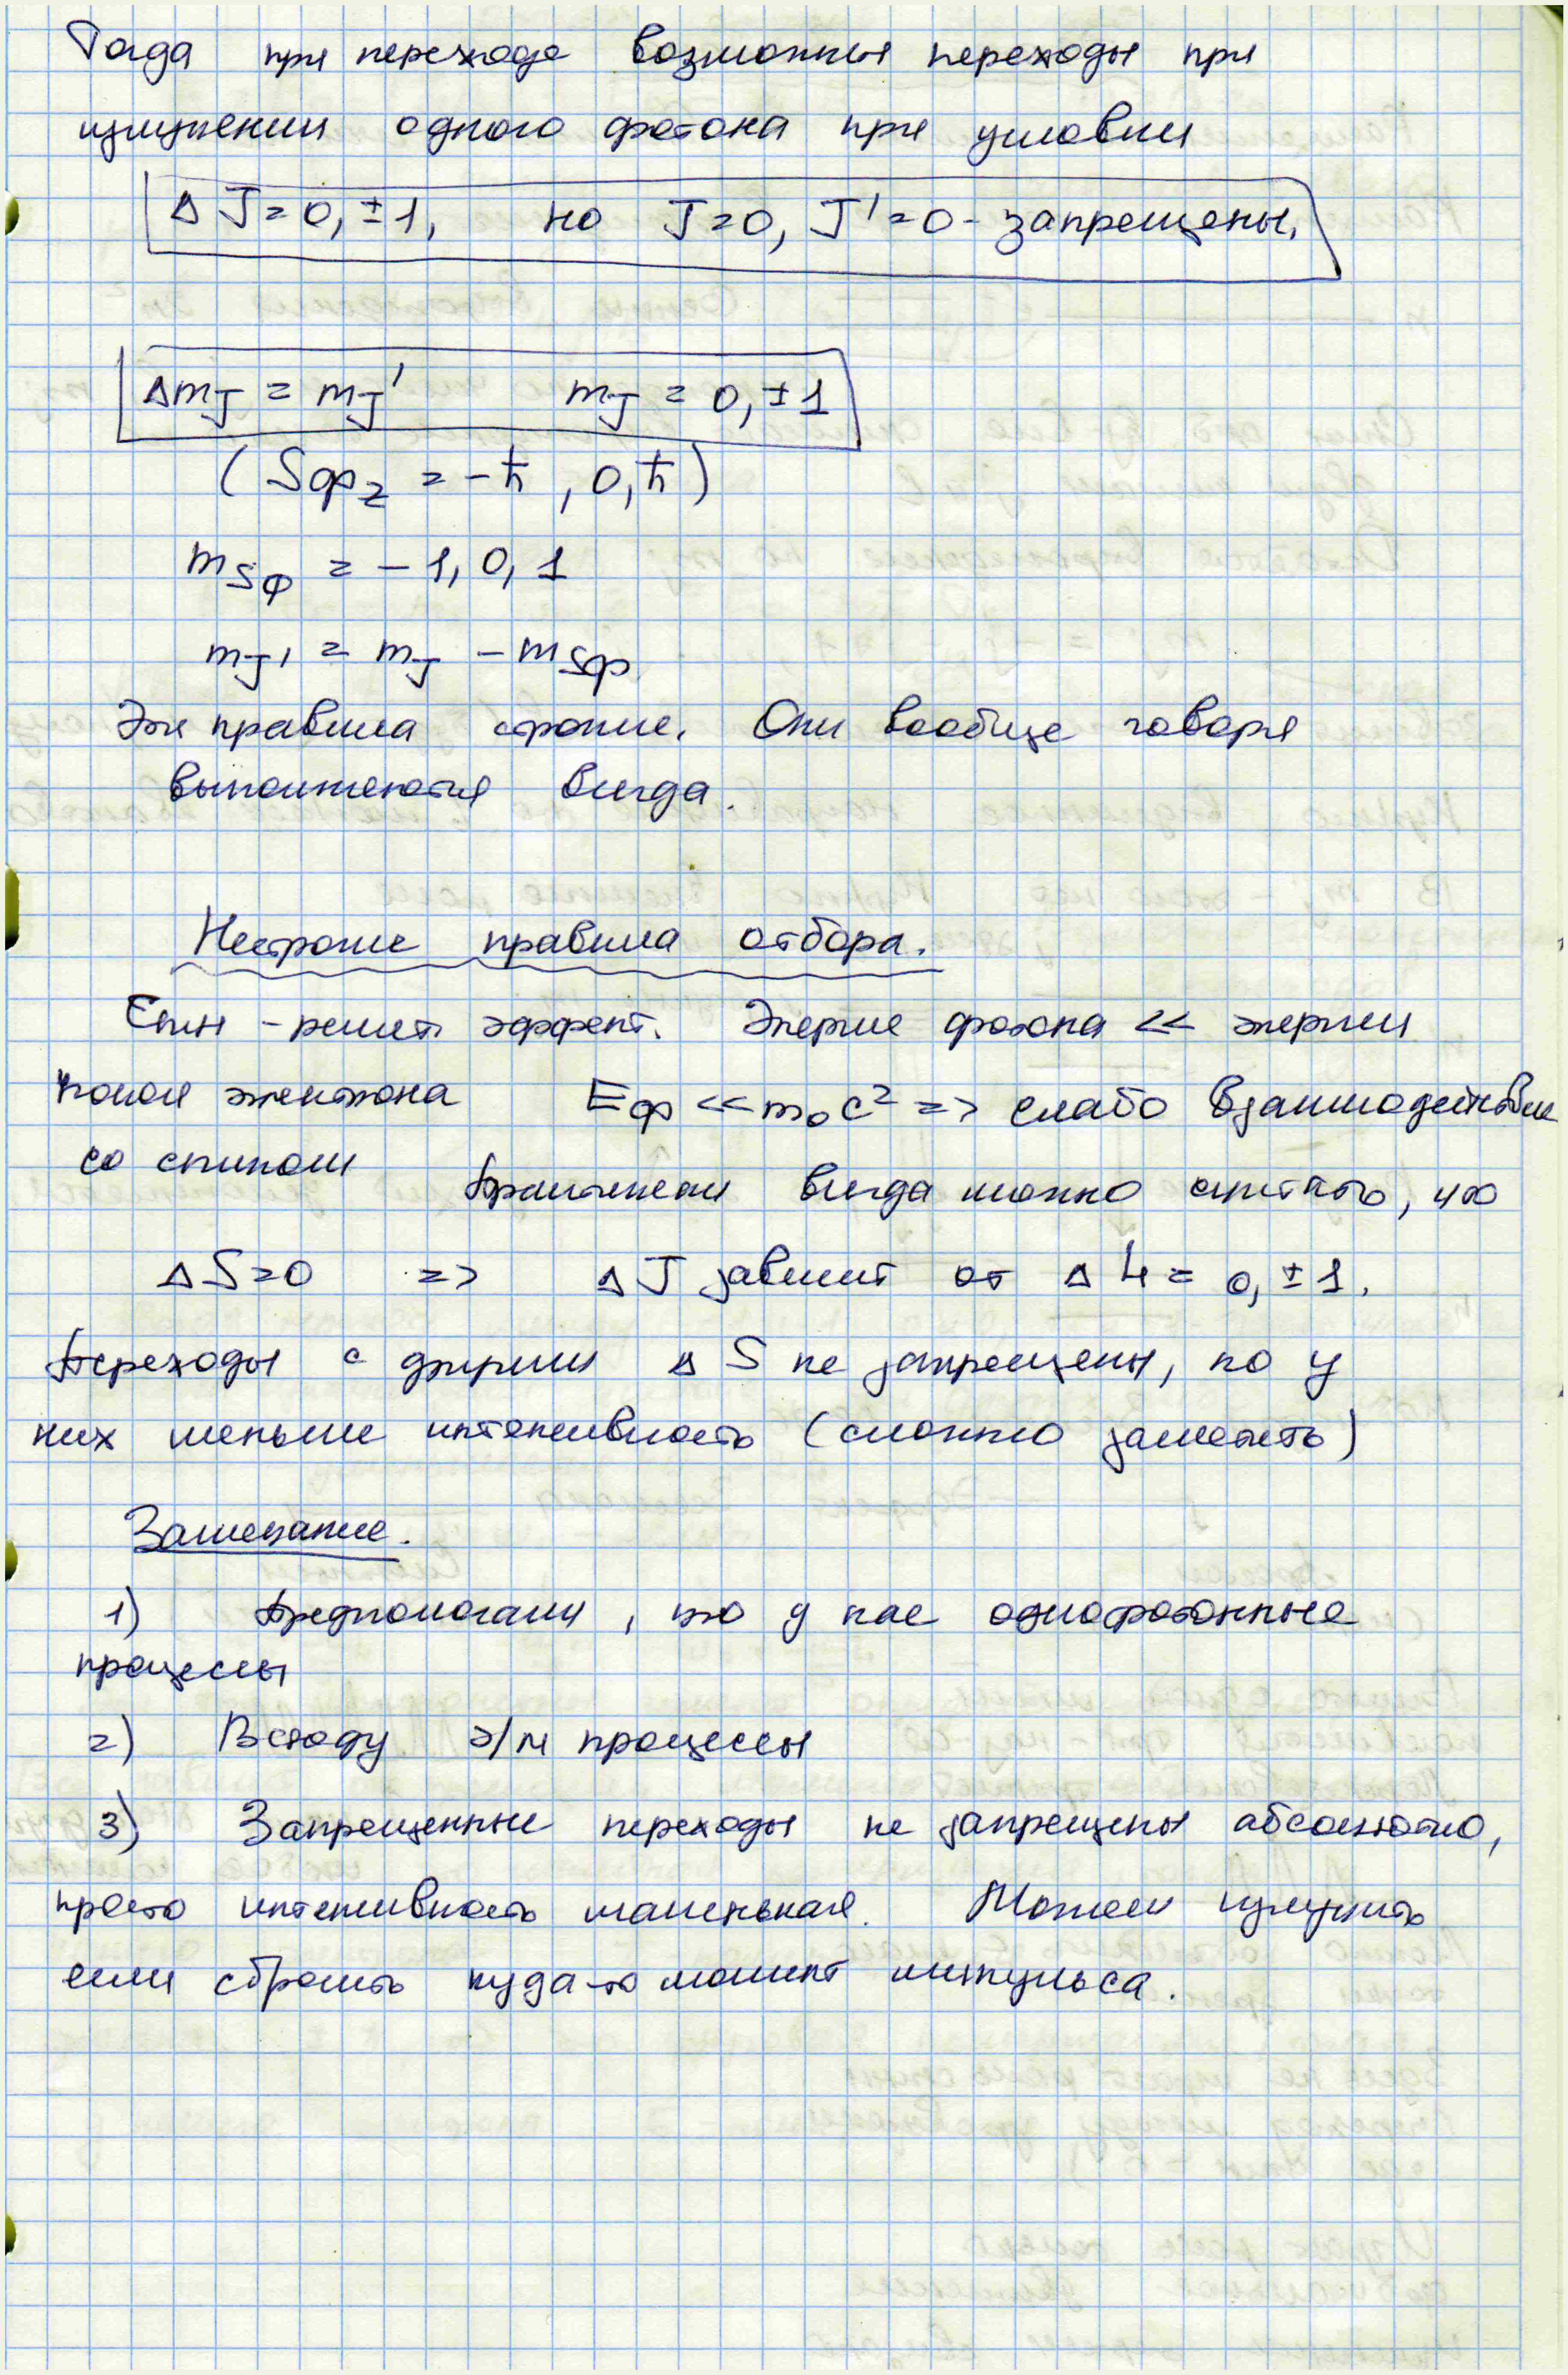 Тогда при переходе возможны переходы при
излучении одного фотона при условии
Δ J = 0, ±1, но J = 0, J' = 0 - запрещены.
Δm_J = m_J' m_J = 0, ±1
(Sф_z = -ħ, 0, ħ)
m_Sф = -1, 0, 1
m_J' = m_J - m_Sф
Эти правила строгие. Они вообще говоря
выполняются всегда.
Нестрогие правила отбора.
Спин - релят. эффект. Энергия фотона << энергии
покоя электрона Eф << m₀c² => слабо взаимодействие
со спином Практически всегда можно считать, что
Δ S = 0 => Δ J зависит от Δ L = 0, ±1.
Переходы с другими Δ S не запрещены, но у
них меньше интенсивность (сложно заметить)
Замечание.
1) Предпологали, что у нас однофотонные
процессы
2) Всюду э/м процессы
3) Запрещенные переходы не запрещены абсолютно,
просто интенсивность маленькая. Можем излучить
если сбросить куда-то момент импульса.